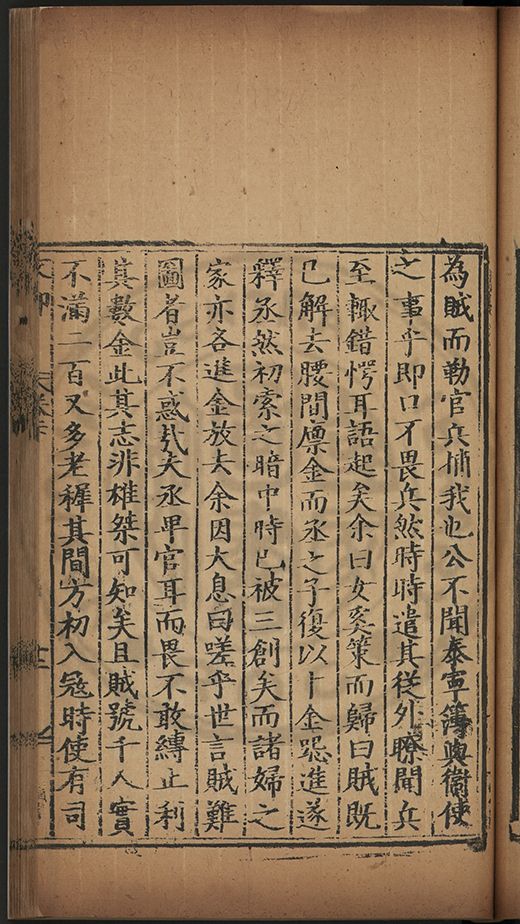 為賊而勒官兵捕我也公不聞泰寧簿與衛使
之事乎即口不畏兵然時時遣其從外瞭聞兵
至輙錯愕耳語起矣余曰女奚策而歸曰賊既
已解去腰間廩金而丞之子復以十金跽進遂
釋丞然初索之暗中時已被三創矣而諸婦之
家亦各進金放去余因大息曰嗟乎世言賊難
圖者豈不惑哉夫丞卑官耳而畏不敢縛止利
其數金此其志非雄桀可知矣且賊號千人實
不滿二百又多老穉其間方初入寇時使有司